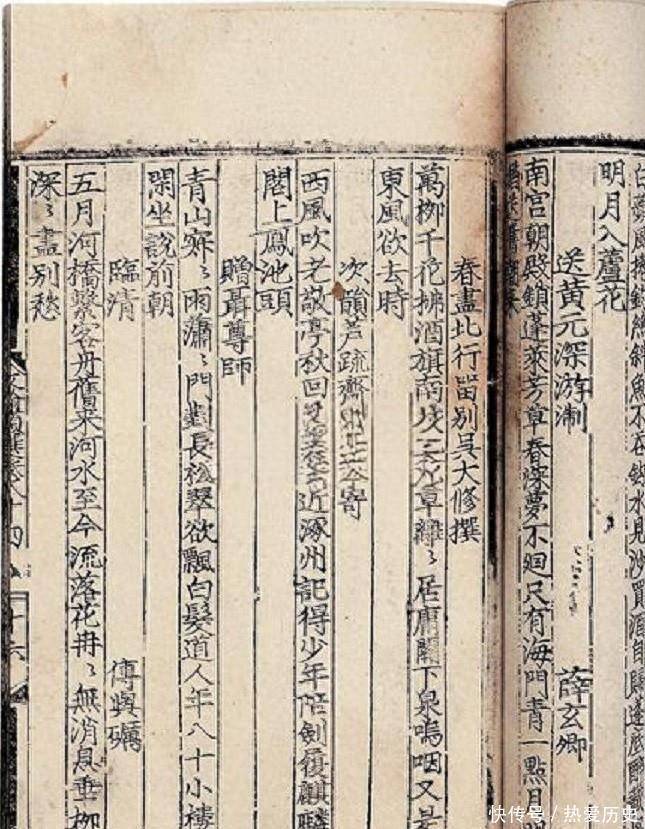 白鷺風捲釣絲斜魚不吞鉤水見沙買酒自歸篷底醉
明月入蘆花
送黃元深游淛 薛玄卿
南宮朝殿鎖蓬萊芳草春深夢不廻只有海門青一點月
春盡北行畱別吳大修撰
萬柳千花拂酒旗南 草離〻居庸關下泉嗚咽又是
東風欲去時
次韻芦疏齋 寄
西風吹老敬亭秋回 近涿州記得少年陪劍履麒麟
閣上鳳池頭
贈聶尊師
青山寂〻雨瀟〻門對長松翠欲飄白髮道人年八十小樓
閑坐說前朝
臨清 傅與礪
五月河橋繫客舟舊來河水至今流落花冉〻無消息垂柳
深〻盡別愁
十六
快传号/热爱历史